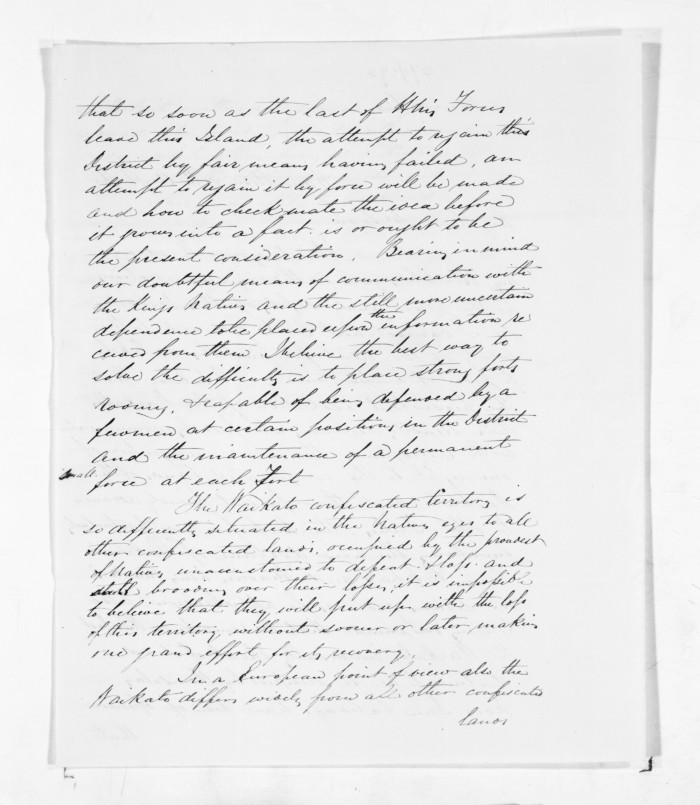 that so soon as the last of this Force
leave this Island, the attempt to regain this
District by fair means having failed, an
attempt to regain it by force will be made
and how to check mate the idea before
it grows into a fact. is or ought to be
the present consideration. Bearing in mind
our doubtful means of communication with
the Kings Natives and the still more uncertain
dependence to be placed upon the information re
ceived from them I believe the best way to
solve the difficulty is to place strong forts
roomy, & capable of being defended by a
few men at certain positions in the District
and the maintenance of a permanent
small force at each Fort
The Waikato confiscated territory is
so differently situated in the Natives eyes to all
other confiscated lands, occupied by the proudest
of Natives unaccustomed to defeat & loss. and
still brooding over their losses, it is impossible
to believe that they will put up with the loss
of this territory without sooner or later making
one grand effort for its recovery.
In a European point of view also the
Waikato differs widely from all other confiscated
lands